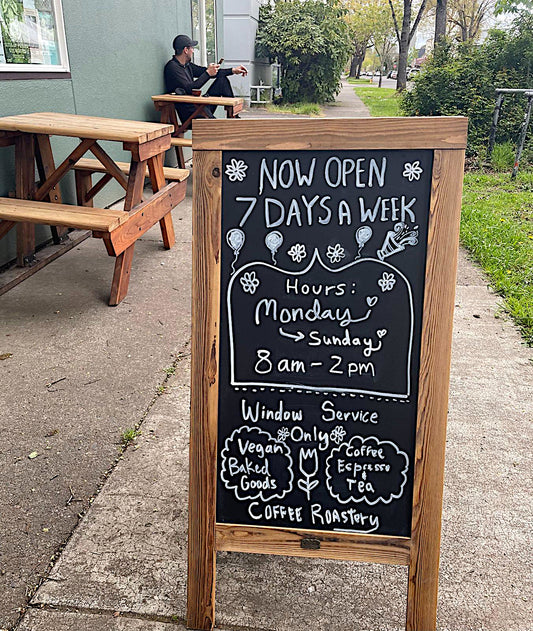 NOW OPEN
7 DAYS A WEEK
Hours:
Monday
Sunday
8am - 2pm
Window Service
Only
Vegan
Baked
Goods
Coffee
Espresso
Tea
COFFEE ROASTERY